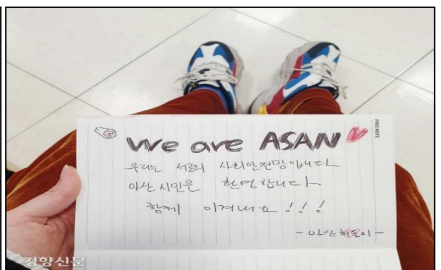 We are ASAN
우리는 서로의 사회안전망입니다
아산 시민을 환영합니다
함께 이겨내요!!!
- 아산 이 -
경향신문